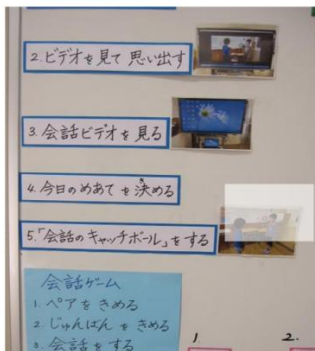 2.ビデオを見て 思い出す
3.会話ビデオを見る
4.今日のめあてを決める
5.「会話のキャッチボール」をする
会話ゲーム
1.ペアをきめる
2.じゅんばんをきめる
3.会話をする
1.
2.